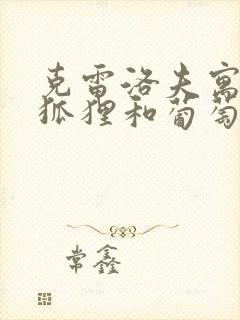 克雷洛夫寓
狐狸和葡萄
常鑫